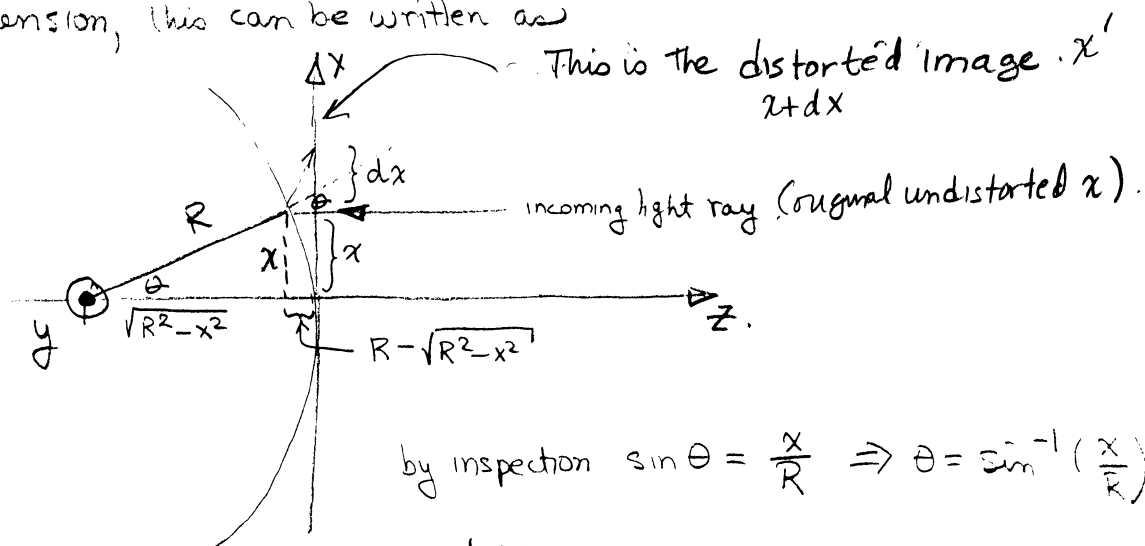 ension, this can be written as
x
This is the distorted image . x'
x+dx
} dx
θ
incoming light ray (original undistorted x).
R
x
} x
θ
√R²-x²
z.
y
R-√R²-x²
by inspection sin θ = x/R ⇒ θ = sin⁻¹(x/R)